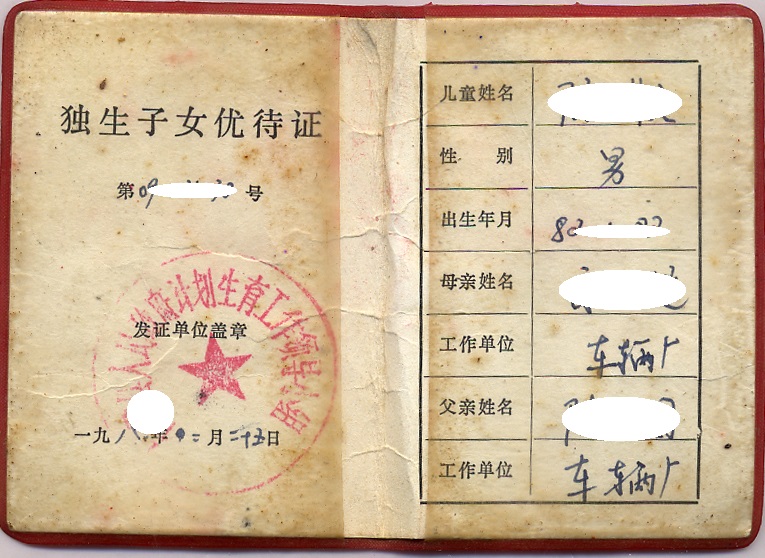 独生子女优待证
第09 号
计划生育工作领导小
发证单位盖章
一九八 年 二月二十五日
儿童姓名
性 别 男
出生年月 80
母亲姓名
工作单位 车辆厂
父亲姓名
工作单位 车辆厂